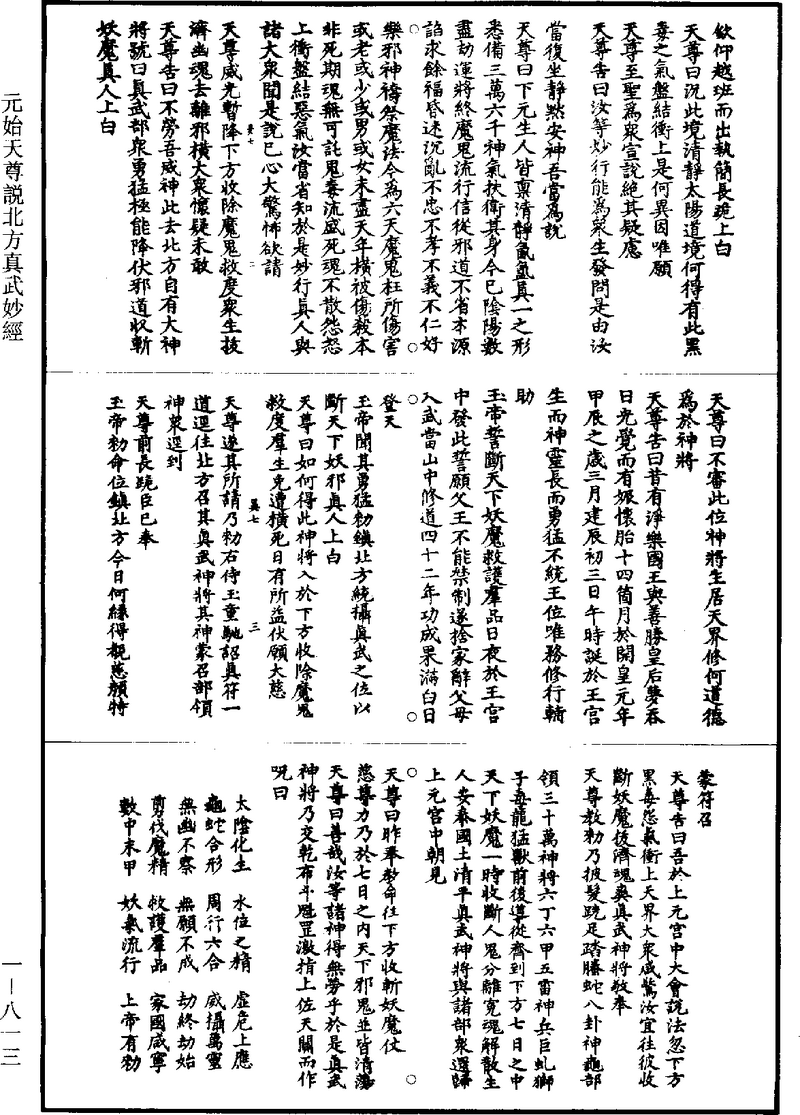 欽仰越班而出執簡長跪上白
天尊曰況此境清靜太陽道境何得有此黑
毒之氣盤結衝上是何異因唯願
天尊至聖爲衆宣說絕其疑慮
天尊告曰汝等妙行能爲衆生發問是由汝
當復坐靜默安神吾當爲說
天尊曰下元生人皆稟清靜氤氳真一之形
悉備三萬六千神氣扶衛其身今已陰陽數
盡劫運將終魔鬼流行信從邪道不省本源
諂求餘福昏迷沉亂不忠不孝不義不仁好
樂邪神禱祭魔法今爲六天魔鬼枉所傷害
或老或少或男或女未盡天年橫被傷殺本
非死期魂無可託鬼毒流盛死魂不散怨怒
上衝盤結惡氣汝當省知於是妙行真人與
諸大衆聞是說已心大驚怖欲請
天尊威光暫降下方收除魔鬼救度衆生拔
濟幽魂去離邪橫大衆懷疑未敢
天尊告曰不勞吾威神此去北方自有大神
將號曰真武部衆勇猛極能降伏邪道收斬
妖魔真人上白
天尊曰不審此位神將生居天界修何道德
爲於神將
天尊告曰昔有淨樂國王與善勝皇后夢吞
日光覺而有娠懷胎十四箇月於開皇元年
甲辰之歲三月建辰初三日午時誕於王宮
生而神靈長而勇猛不統王位唯務修行輔
助
玉帝誓斷天下妖魔救護羣品日夜於王宮
中發此誓願父王不能禁制遂捨家辭父母
入武當山中修道四十二年功成果滿白日
登天
玉帝聞其勇猛勑鎮北方統攝真武之位以
斷天下妖邪真人上白
天尊曰如何得此神將入於下方收除魔鬼
救度羣生免遭橫死日有所益伏願大慈
天尊遂其所請乃勑右侍玉童馳詔真符一
道逕往北方召其真武神將其神蒙召部領
神衆逕到
天尊前長跪臣已奉
玉帝勑命位鎮北方今日何緣得覩慈顏特
蒙符召
天尊告曰吾於上元宮中大會說法忽下方
黑毒怨氣衝上天界大衆咸驚汝宜往彼收
斷妖魔拔濟魂爽真武神將敬奉
天尊教勑乃披髮跣足踏螣蛇八卦神龜部
領三十萬神將六丁六甲五雷神兵巨虬獅
子毒龍猛獸前後導從齊到下方七日之中
天下妖魔一時收斷人鬼分離冤魂解散生
人安泰國土清平真武神將與諸部衆還歸
上元宮中朝見
天尊曰昨奉教命往下方收斬妖魔仗
慈尊力乃於七日之內天下邪鬼並皆清蕩
天尊曰善哉汝等諸神得無勞乎於是真武
神將乃交乾布斗魁罡激指上佐天關而作
呪曰
太陰化生　水位之精　虛危上應
龜蛇合形　周行六合　威攝萬靈
無幽不察　無願不成　劫終劫始
剪伐魔精　救護羣品　家國咸寧
數中末甲　妖氣流行　上帝有勑
元始天尊説北方真武妙經
一—八一三